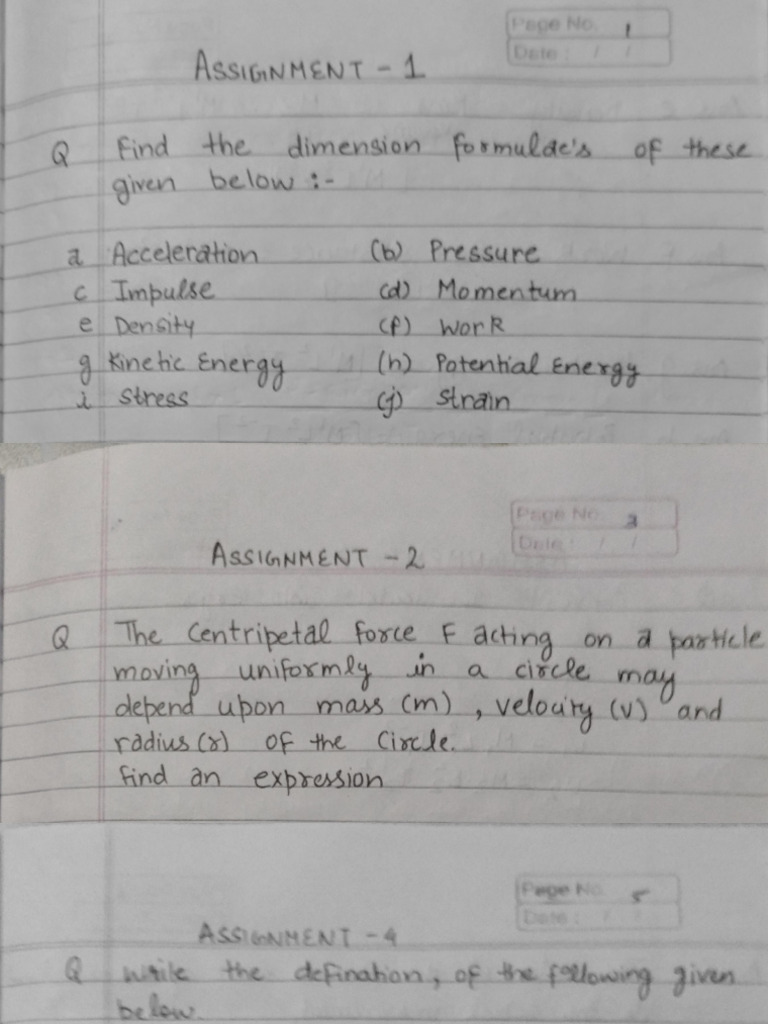 Page No. 1
Date: / /
ASSIGNMENT - 1
Q Find the dimension formulae's of these
given below :-
a Acceleration (b) Pressure
c Impulse (d) Momentum
e Density (f) Work
g Kinetic Energy (h) Potential Energy
i Stress (j) Strain
Page No. 2
Date: / /
ASSIGNMENT - 2
Q The Centripetal force F acting on a particle
moving uniformly in a circle may
depend upon mass (m), velocity (v) and
radius (r) of the Circle.
Find an expression
Page No. 5
Date: / /
ASSIGNMENT - 4
Q Write the defination, of the following given
below.